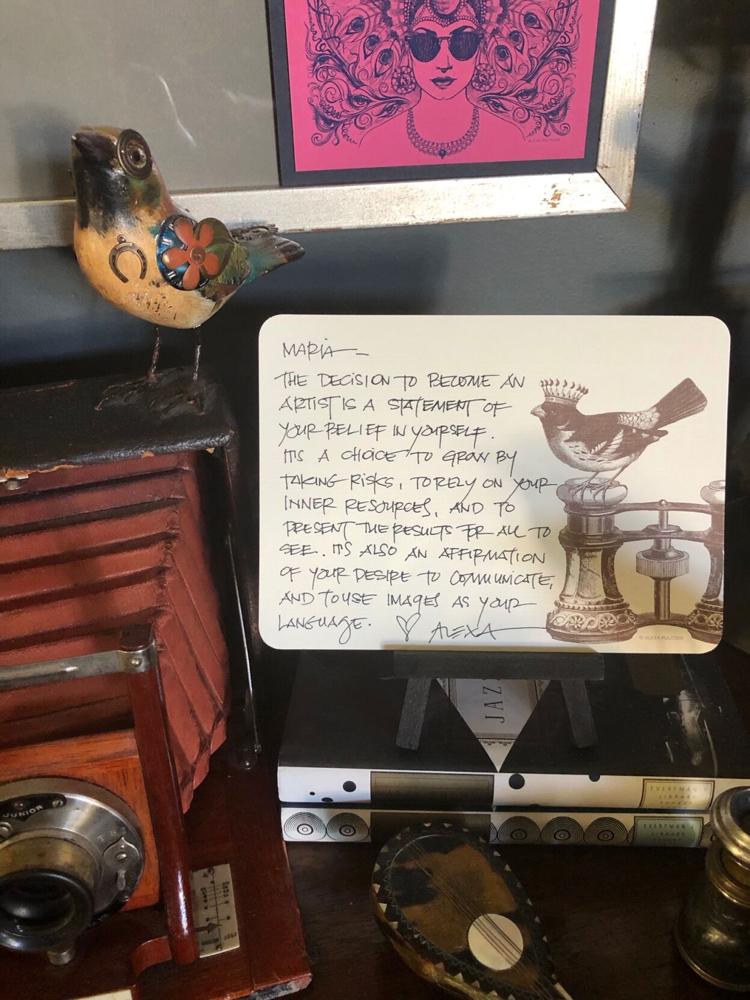 MARIA —
THE DECISION TO BECOME AN
ARTIST IS A STATEMENT OF
YOUR BELIEF IN YOURSELF.
ITS A CHOICE TO GROW BY
TAKING RISKS, TO RELY ON YOUR
INNER RESOURCES, AND TO
PRESENT THE RESULTS FOR ALL TO
SEE. ITS ALSO AN AFFIRMATION
OF YOUR DESIRE TO COMMUNICATE,
AND TO USE IMAGES AS YOUR
LANGUAGE. ♡ ALEXA
© ALEXA PULITZER
JAZZ
EVERYMAN'S
LIBRARY
EVERYMAN'S
LIBRARY
JUNIOR